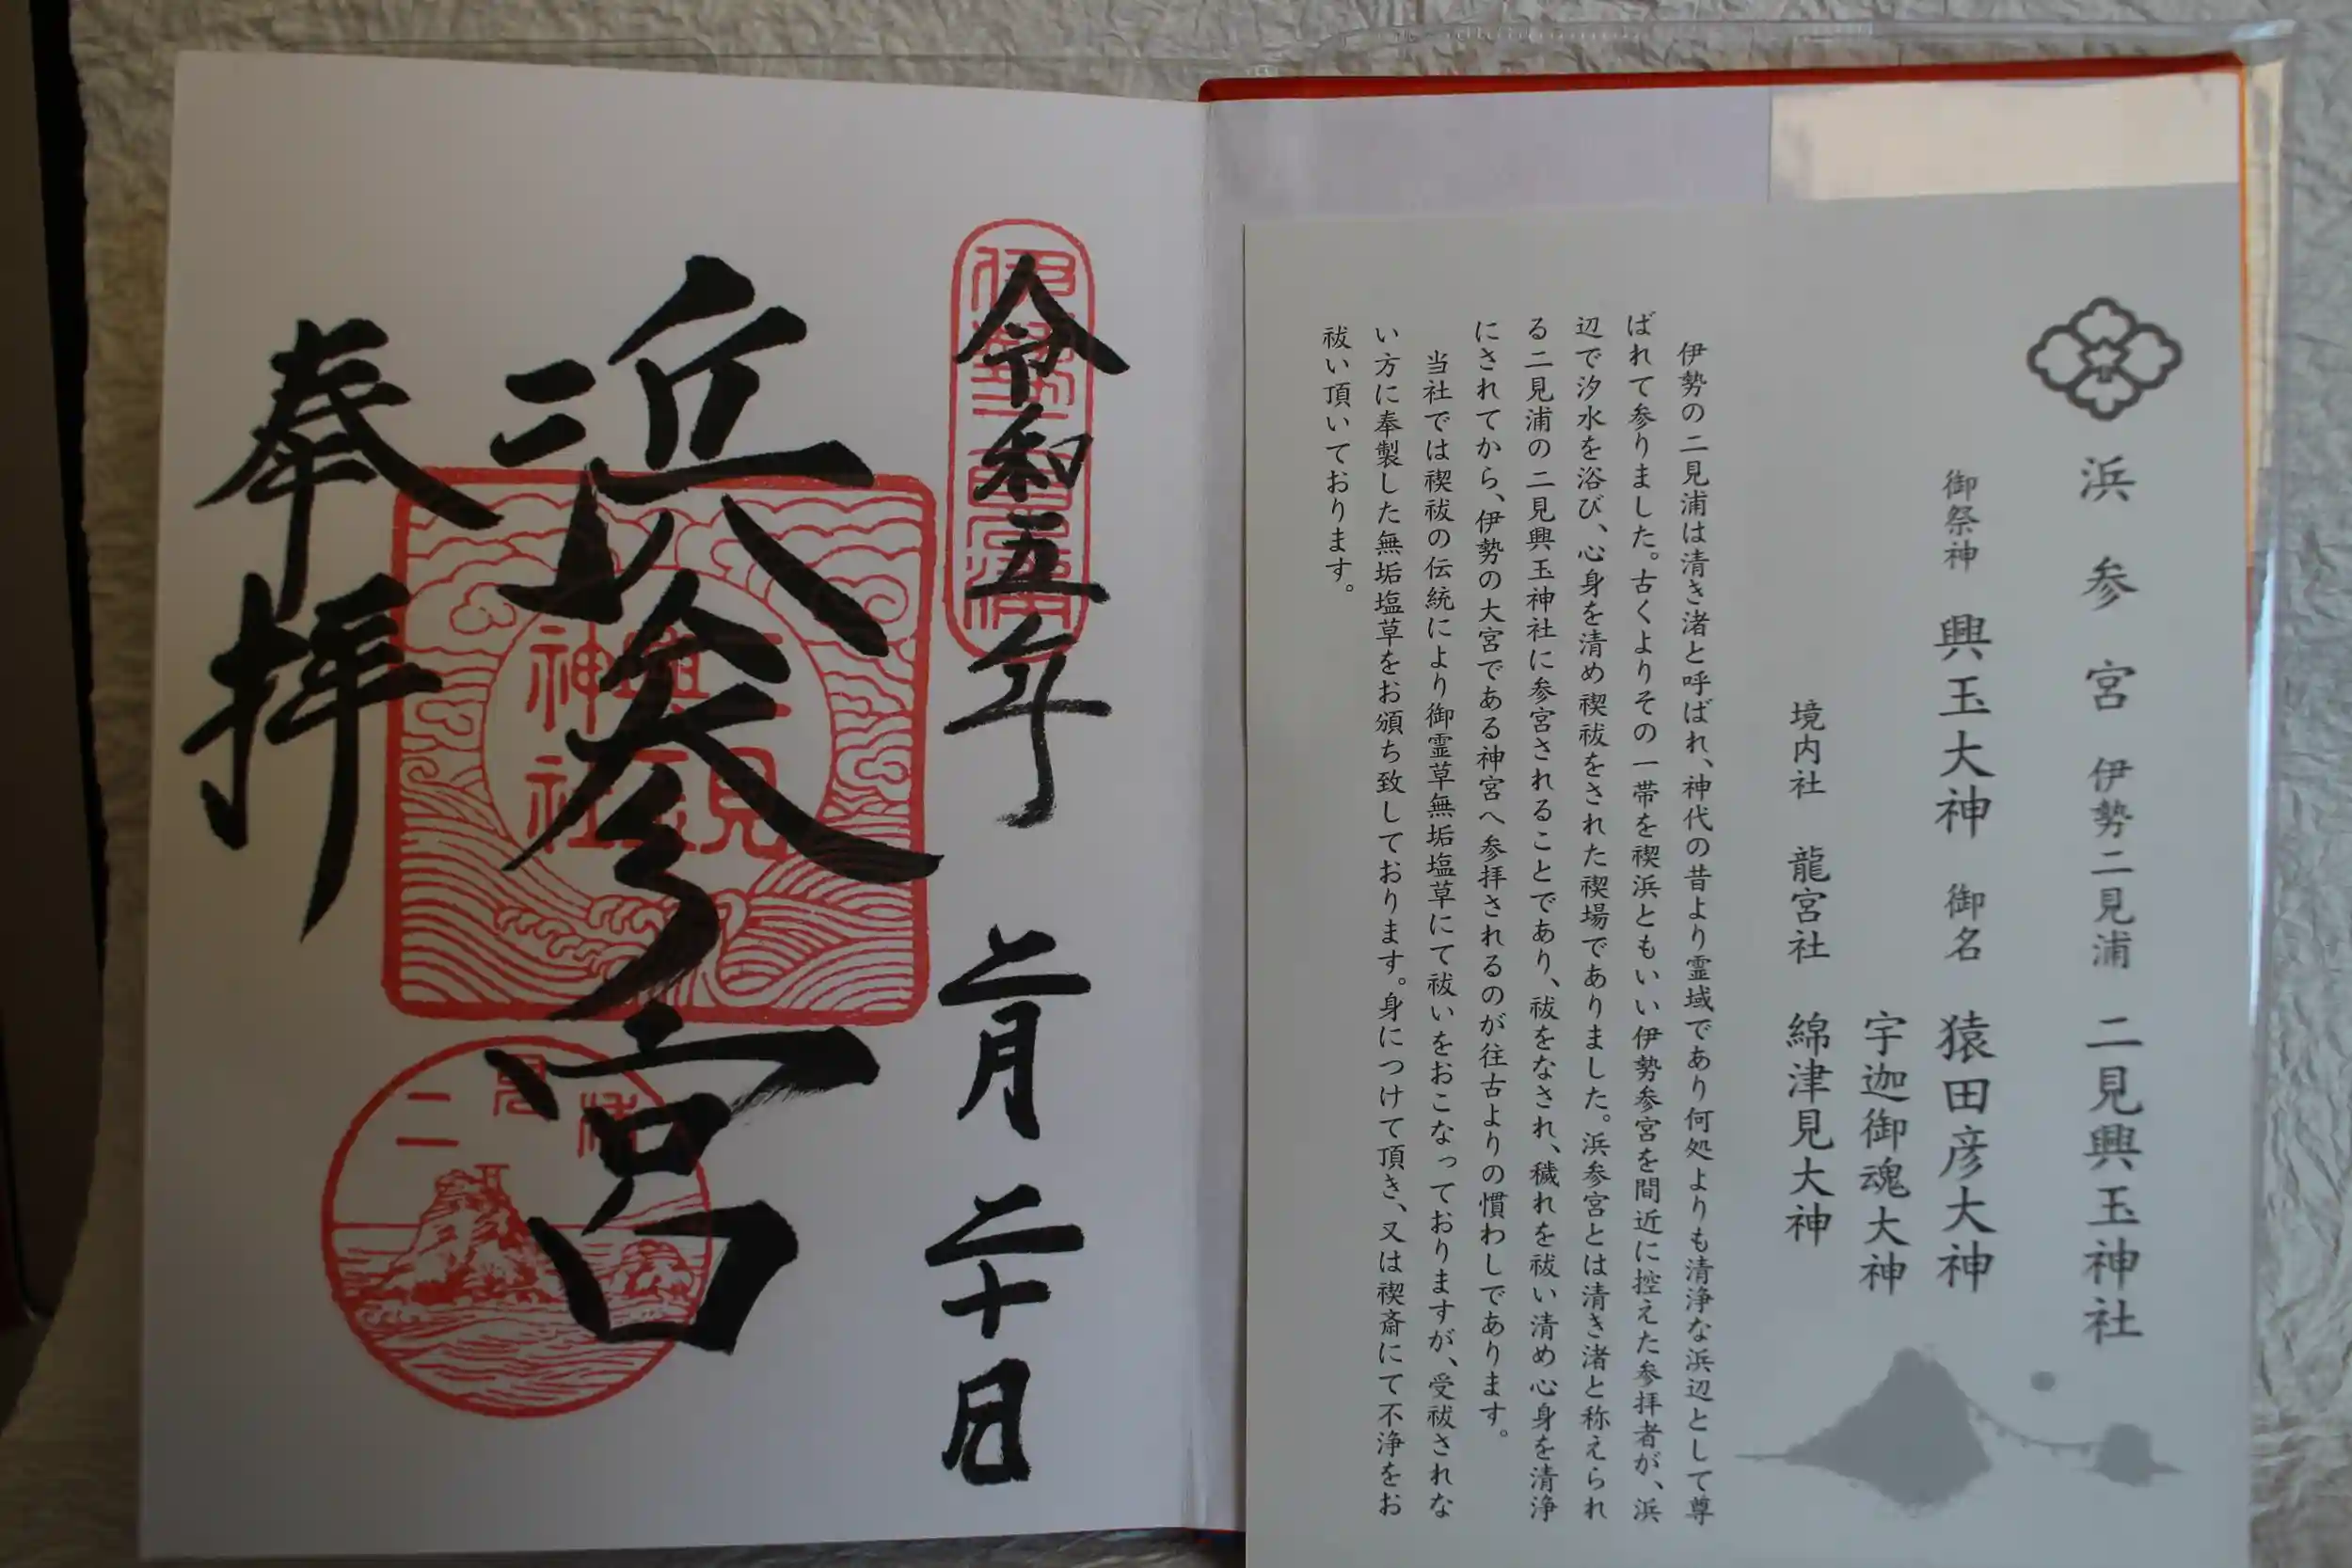 浜参宮 伊勢二見浦 二見興玉神社
御祭神 興玉大神 御名 猿田彦大神
宇迦御魂大神
境内社 龍宮社 綿津見大神
伊勢の二見浦は清き渚と呼ばれ、神代の昔より霊域であり何処よりも清浄な浜辺として尊
ばれて参りました。古くよりその一帯を禊浜ともいい伊勢参宮を間近に控えた参拝者が、浜
辺で汐水を浴び、心身を清め禊祓をされた禊場でありました。浜参宮とは清き渚と称えられ
る二見浦の二見興玉神社に参宮されることであり、祓をなされ、穢れを祓い清め心身を清浄
にされてから、伊勢の大宮である神宮へ参拝されるのが往古よりの慣わしであります。
当社では禊祓の伝統により御霊草無垢塩草にて祓いをおこなっておりますが、受祓されな
い方に奉製した無垢塩草をお頒ち致しております。身につけて頂き、又は禊斎にて不浄をお
祓い頂いております。
令和五年 二月二十日
伊勢二見浦
浜参宮
二見興玉神社
二見浦
奉拝